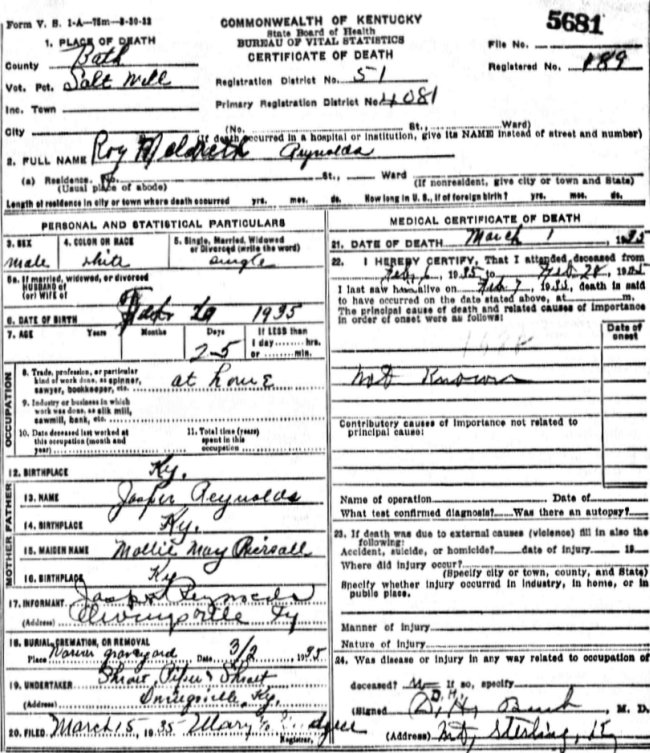 Form V. S. 1-A—75m—8-30-32
COMMONWEALTH OF KENTUCKY
State Board of Health
BUREAU OF VITAL STATISTICS
CERTIFICATE OF DEATH
5681
File No.
Registered No. 189
1. PLACE OF DEATH
County Bath
Vot. Pct. Salt Well
Inc. Town
City
Registration District No. 51
Primary Registration District No. 4081
(No. St., Ward)
(If death occurred in a hospital or institution, give its NAME instead of street and number)
2. FULL NAME Roy Reynolds
(a) Residence. No. St., Ward
(Usual place of abode) (If nonresident, give city or town and State)
Length of residence in city or town where death occurred yrs. mos. ds. How long in U. S., if of foreign birth? yrs. mos. ds.
PERSONAL AND STATISTICAL PARTICULARS
3. SEX 4. COLOR OR RACE 5. Single, Married, Widowed
or Divorced (write the word)
male white single
5a. If married, widowed, or divorced
HUSBAND of
(or) WIFE of
6. DATE OF BIRTH 1935
7. AGE Years Months Days If LESS than
1 day hrs.
25 or min.
OCCUPATION
8. Trade, profession, or particular
kind of work done, as spinner,
sawyer, bookkeeper, etc. at home
9. Industry or business in which
work was done, as silk mill,
sawmill, bank, etc.
10. Date deceased last worked at
this occupation (month and
year)
11. Total time (years)
spent in this
occupation
12. BIRTHPLACE Ky.
FATHER
13. NAME Jasper Reynolds
14. BIRTHPLACE Ky.
MOTHER
15. MAIDEN NAME Mollie May Piersall
16. BIRTHPLACE Ky
17. INFORMANT Jasper Reynolds
(Address) Owingsville Ky
18. BURIAL, CREMATION, OR REMOVAL
Place graveyard Date 3/2, 1935
19. UNDERTAKER Shrout, Piper & Shrout
(Address) Owingsville, Ky.
20. FILED March 15, 1935 Mary
Registrar.
MEDICAL CERTIFICATE OF DEATH
21. DATE OF DEATH March 1, 1935
22. I HEREBY CERTIFY, That I attended deceased from
Feb, 6, 1935 to Feb 28, 1935
I last saw him alive on Feb 7, 1935, death is said
to have occurred on the date stated above, at m.
The principal cause of death and related causes of importance
in order of onset were as follows:
Date of
onset
Not Known
Contributory causes of importance not related to
principal cause:
Name of operation Date of
What test confirmed diagnosis? Was there an autopsy?
23. If death was due to external causes (violence) fill in also the
following:
Accident, suicide, or homicide? date of injury 19
Where did injury occur?
(Specify city or town, county, and State)
Specify whether injury occurred in industry, in home, or in
public place.
Manner of injury
Nature of injury
24. Was disease or injury in any way related to occupation of
deceased? No If so, specify
D. H.
(Signed D. H. Bush, M. D.
(Address) Mt, Sterling, Ky